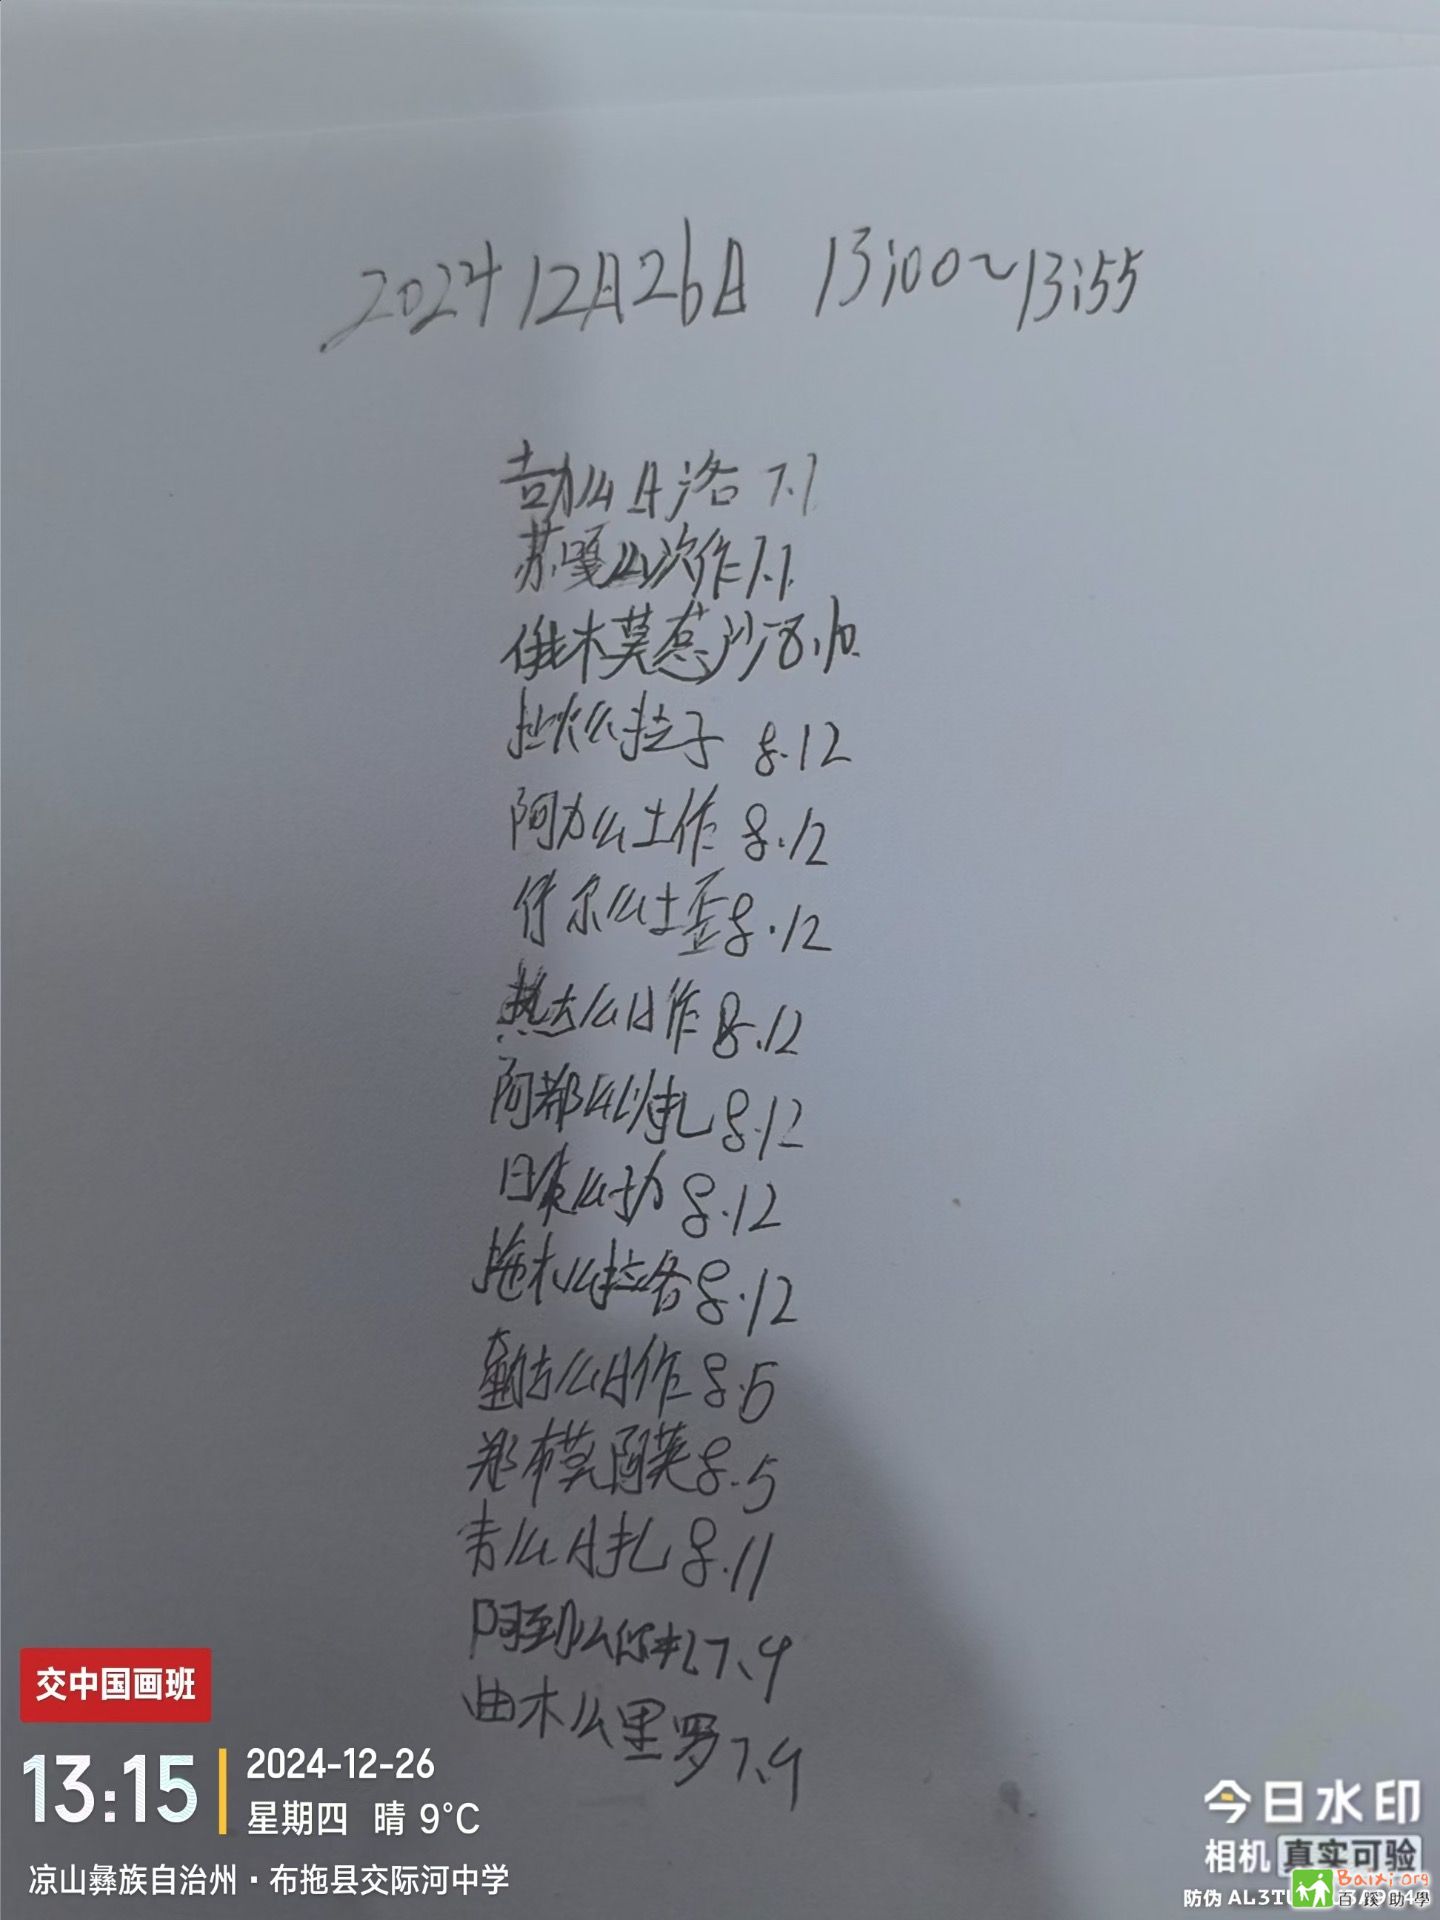 2024 12月26日 13:00~13:55
么日洛 7.1
苏嘎么次作7.1
俄木莫惹沙8.10
么拉子 8.12
阿力么土作 8.12
尔么土歪8.12
热古么日作 8.12
阿都么扎 8.12
日么 8.12
拖木么拉各8.12
古么日作 8.5
郑木莫阿英8.5
么日扎 8.11
阿到么你扎7.9
曲木么里罗7.9
交中国画班
13:15
2024-12-26
星期四 晴 9°C
凉山彝族自治州·布拖县交际河中学
今日水印
相机 真实可验
防伪 AL3TU
Baixi.org
百蹊助學